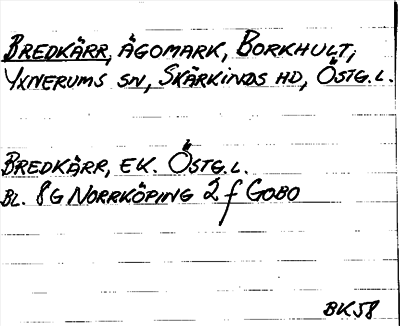 BREDKÄRR, ÄGOMARK, BORKHULT,
YXNERUMS SN, SKÄRKINDS HD, ÖSTG.L.
BREDKÄRR, EK. ÖSTG.L.
BL. 8G NORRKÖPING 2 f GOBO
BK58